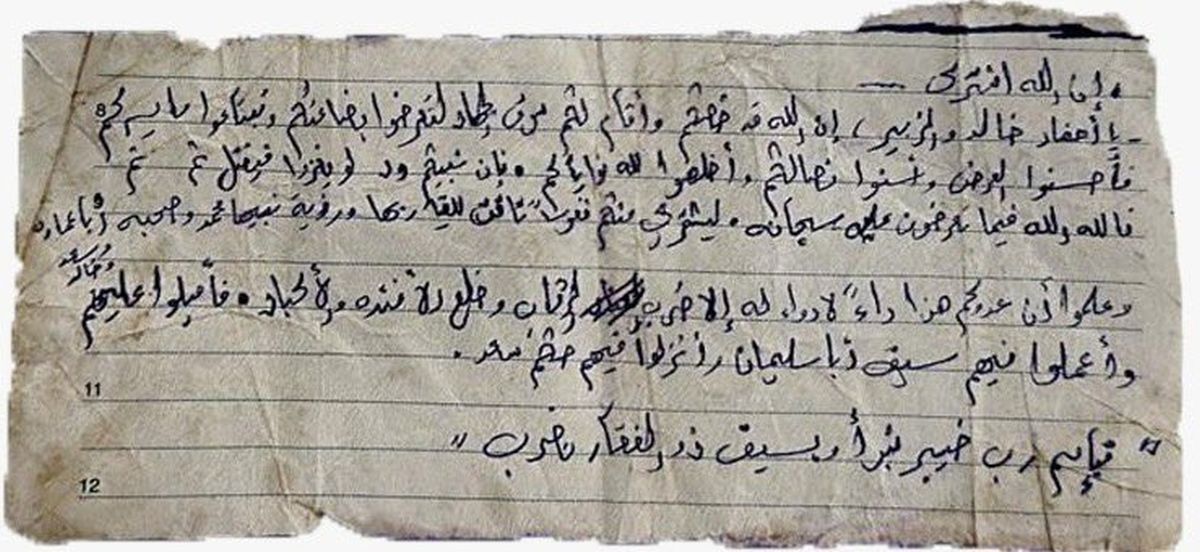 إن الله اشترى
يا أحفاد خالد والزبير، إن الله قد خصكم وأقام لكم سوق الجهاد لتعرضوا بضاعتكم وتبتاعوا ما يسركم
فأحسنوا العرض وأحسنوا نصالكم وأخلصوا لله نواياكم، فإن نبيكم ود لو يغزوا فيقتل ثم ثم
فالله الله فيما تعرضون عليه سبحانه، ليشتري منكم نفوساً تاقت للقاء ربها ورؤية نبيها محمد وصحبه أبا عمارة
وخالد وسعد
وعلموا أن عدوكم هذا داءً لا دواء له إلا ضرب الرقاب وخلع الأفئدة والأكباد. فأقبلوا عليهم
وأعملوا فيهم سيف أبا سليمان وأنزلوا فيهم حكم سعد.
11
" فبإسم رب خيبر نبدأ وبسيف ذو الفقار نضرب "
12